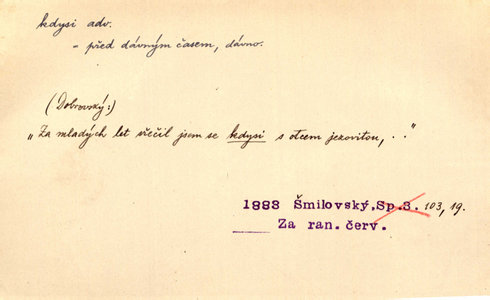 kdysi adv.
= před dávným časem, dávno.
(Dobrovský:)
„Za mladých let vřečil jsem se kdysi s otcem jezovitou, . ."
1883 Šmilovský, Sp.3. 103, 19.
Za ran. červ.